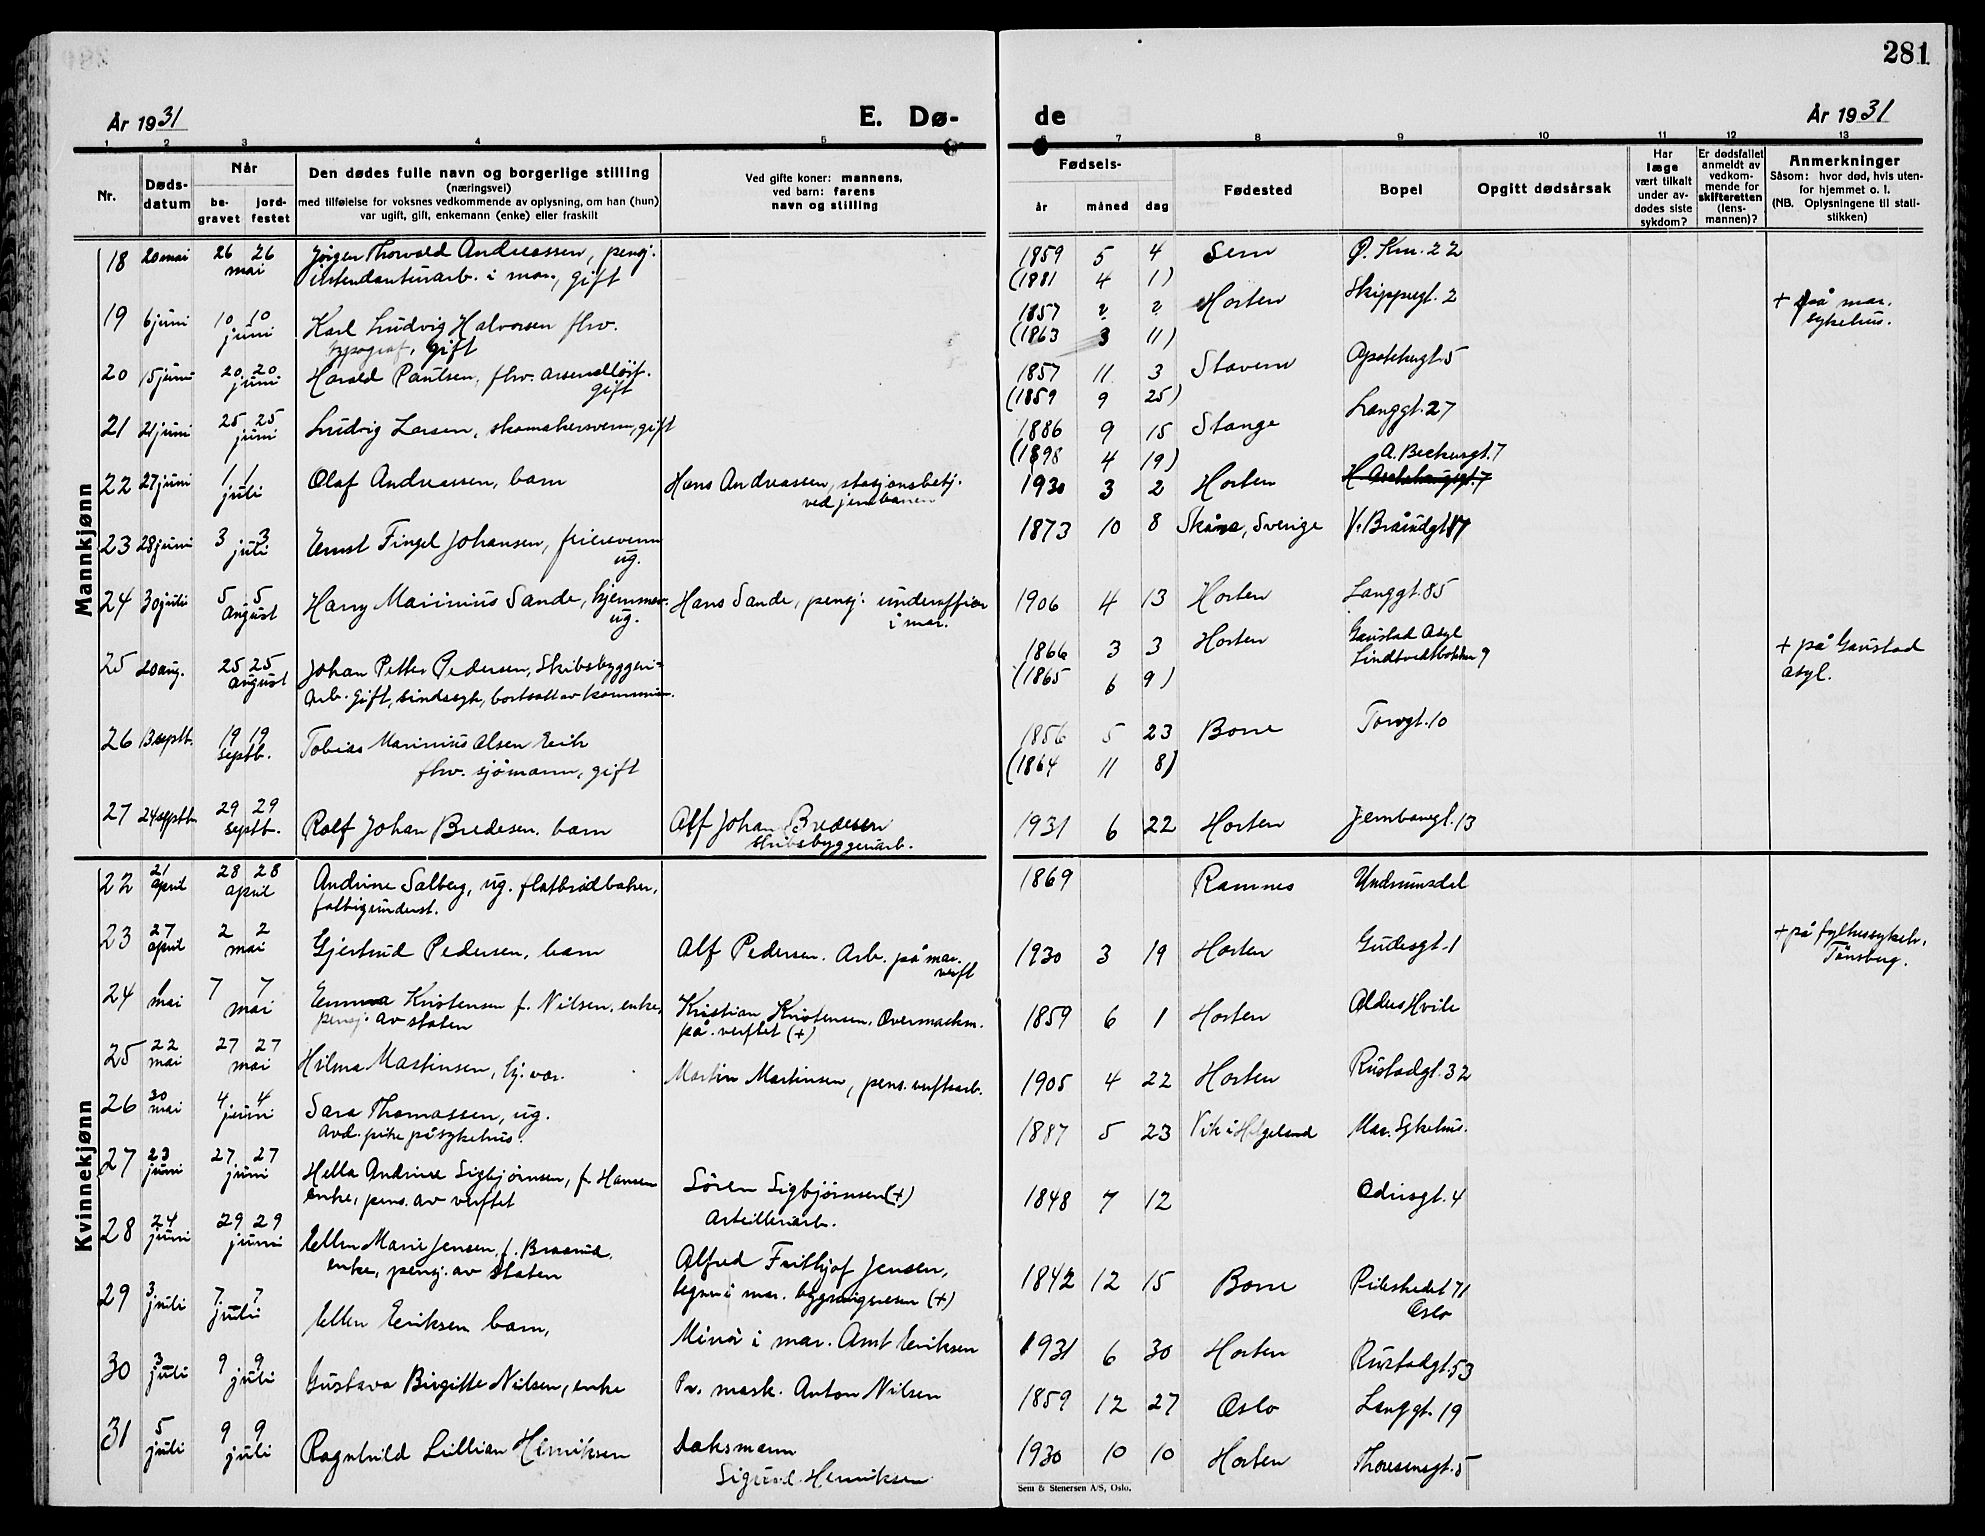 281
År 1931
E. Dø-
de
År 1931
1 2 3 4 5 6 7 8 9 10 11 12 13
Nr.
Døds-
datum
Når
be-
gravet
jord-
festet
Den dødes fulle navn og borgerlige stilling
(næringsvei)
med tilføielse for voksnes vedkommende av oplysning, om han (hun)
var ugift, gift, enkemann (enke) eller fraskilt
Ved gifte koner: mannens,
ved barn: farens
navn og stilling
Fødsels-
år måned dag
Fødested
Bopel
Opgitt dødsårsak
Har
læge
vært tilkalt
under av-
dødes siste
sykdom?
Er dødsfallet
anmeldt av
vedkom-
mende for
skifteretten
(lens-
mannen)?
Anmerkninger
Såsom: hvor død, hvis uten-
for hjemmet o. l.
(NB. Oplysningene til stati-
stikken)
Mannkjønn
18 20 mai 26 26 Jørgen Thorvald Andreassen, pensj. 1859 5 4 Sem Ø. Km. 22
mai intendanturarb. i mar., gift (1881 4 1)
19 6 juni 10 10 Karl Ludvig Halvorsen fhv. 1857 2 2 Horten Skippergt. 2 + på mar.
juni typograf, gift (1863 3 11) sykehus.
20 15 juni 20 20 Harald Paulsen, fhv. arsenalløit. 1857 11 3 Stavern Apotekergt. 5
juni gift (1859 9 25)
21 21 juni 25 25 Ludvig Larsen, skomakersvenn, gift 1886 9 15 Stange Langgt. 27
juni (1898 4 19)
A. Beckersgt. 7
22 27 juni 1 1 Olaf Andreassen, barn Hans Andreassen, stasjonsbetj. 1930 3 2 Horten
juli ved jernbanen
23 28 juni 3 3 Ernst Fingel Johansen, feiersvenn 1873 10 8 Skåne, Sverige V. Braarudgt. 17
juli ug.
24 30 juli 5 5 Harry Marinius Sande, hjemmev. Hans Sande, pensj. underoffiser 1906 4 13 Horten Langgt. 85
august ug. i mar.
25 20 aug. 25 25 Johan Petter Pedersen, Skibsbyggeri= 1866 3 3 Horten Gaustad Asyl + på Gaustad
august arb. Gift, sindssyk, bortsatt av kommunen. (1865 6 9) Lindtvedtbakken 9 asyl.
26 13 septb. 19 19 Tobias Marinius Olsen Erik 1856 5 23 Borre Torvgt. 10
septb. fhv. sjømann, gift (1864 11 8)
27 24 septb. 29 29 Rolf Johan Bredesen, barn Alf Johan Bredesen 1931 6 22 Horten Jernbanegt. 13
septb. skibsbyggeriarb.
Kvinnekjønn
22 21 28 28 Andrine Solberg, ug. flatbrødbaker, 1869 Ramnes Undrumsdal
april april fattigunderst.
23 27 2 2 Gjertrud Pedersen, barn Alf Pedersen. Arb. på mar. 1930 3 19 Horten Gudesgt. 1 + på fylkessykeh.
april mai verft Tønsberg.
24 1 7 7 Emma Kristensen f. Nilsen, enke, Kristian Kristensen, Overmaskm. 1859 6 1 Horten Alders Hvile
mai mai pensj. av staten på verftet (+)
25 22 27 27 Hilma Martinsen, hj. vær. Martin Martinsen, pens. verftsarb. 1905 4 22 Horten Rustadgt. 32
mai mai
26 30 4 4 Sara Thomassen, ug. 1887 5 23 Vik i Helgeland Mar. Sykehus.
mai juni avd. pike på sykehus.
27 23 27 27 Hella Andrine Sigbjørnsen, f. Hansen Søren Sigbjørnsen (+) 1848 7 12 Odinsgt. 4
juni juni enke, pens. av verftet Artilleriarb.
28 24 29 29 Ellen Marie Jensen, f. Braarud, Alfred Frithjof Jensen, 1842 12 15 Borre Pilestredet 71
juni juni enke, pensj. av staten tegner i mar. bygningsvesen (+) Oslo
29 3 7 7 Ellen Eriksen barn, Minør i mar. Arnt Eriksen 1931 6 30 Horten Rustadgt. 53
juli juli
30 3 9 9 Gustava Birgitte Nilsen, enke Pv. mask. Anton Nilsen 1859 12 27 Oslo Langgt. 19
juli juli
31 5 9 9 Ragnhild Lillian Henriksen Daksmann 1930 10 10 Horten Thoresensgt. 5
juli juli Sigurd Henriksen
Sem & Stenersen A/S, Oslo.